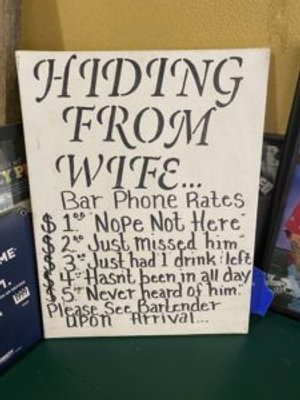 HIDING
FROM
WIFE...
Bar Phone Rates
$ 1.00 "Nope Not Here"
$ 2.00 "Just missed him"
$ 3.00 "Just had 1 drink & left
$ 4.00 "Hasn't been in all day
$ 5.00 "Never heard of him."
Please See Bartender
upon Arrival...